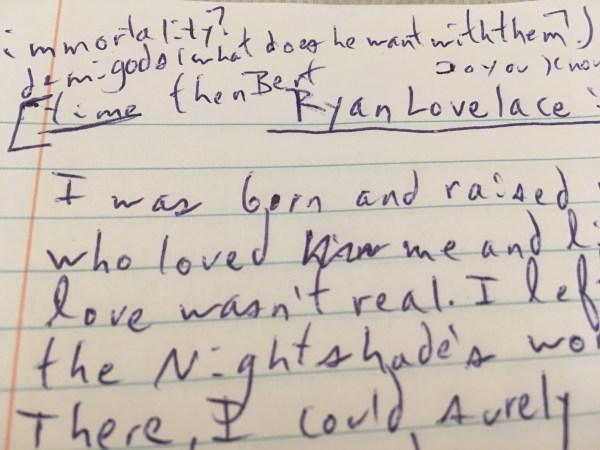 immortality?
demigods (what does he want with them?)
Do you know
[time then Bert
Ryan Lovelace:
I was born and raised
who loved me and li
love wasn't real. I lef
the Nightshade's wo
There, I could surely